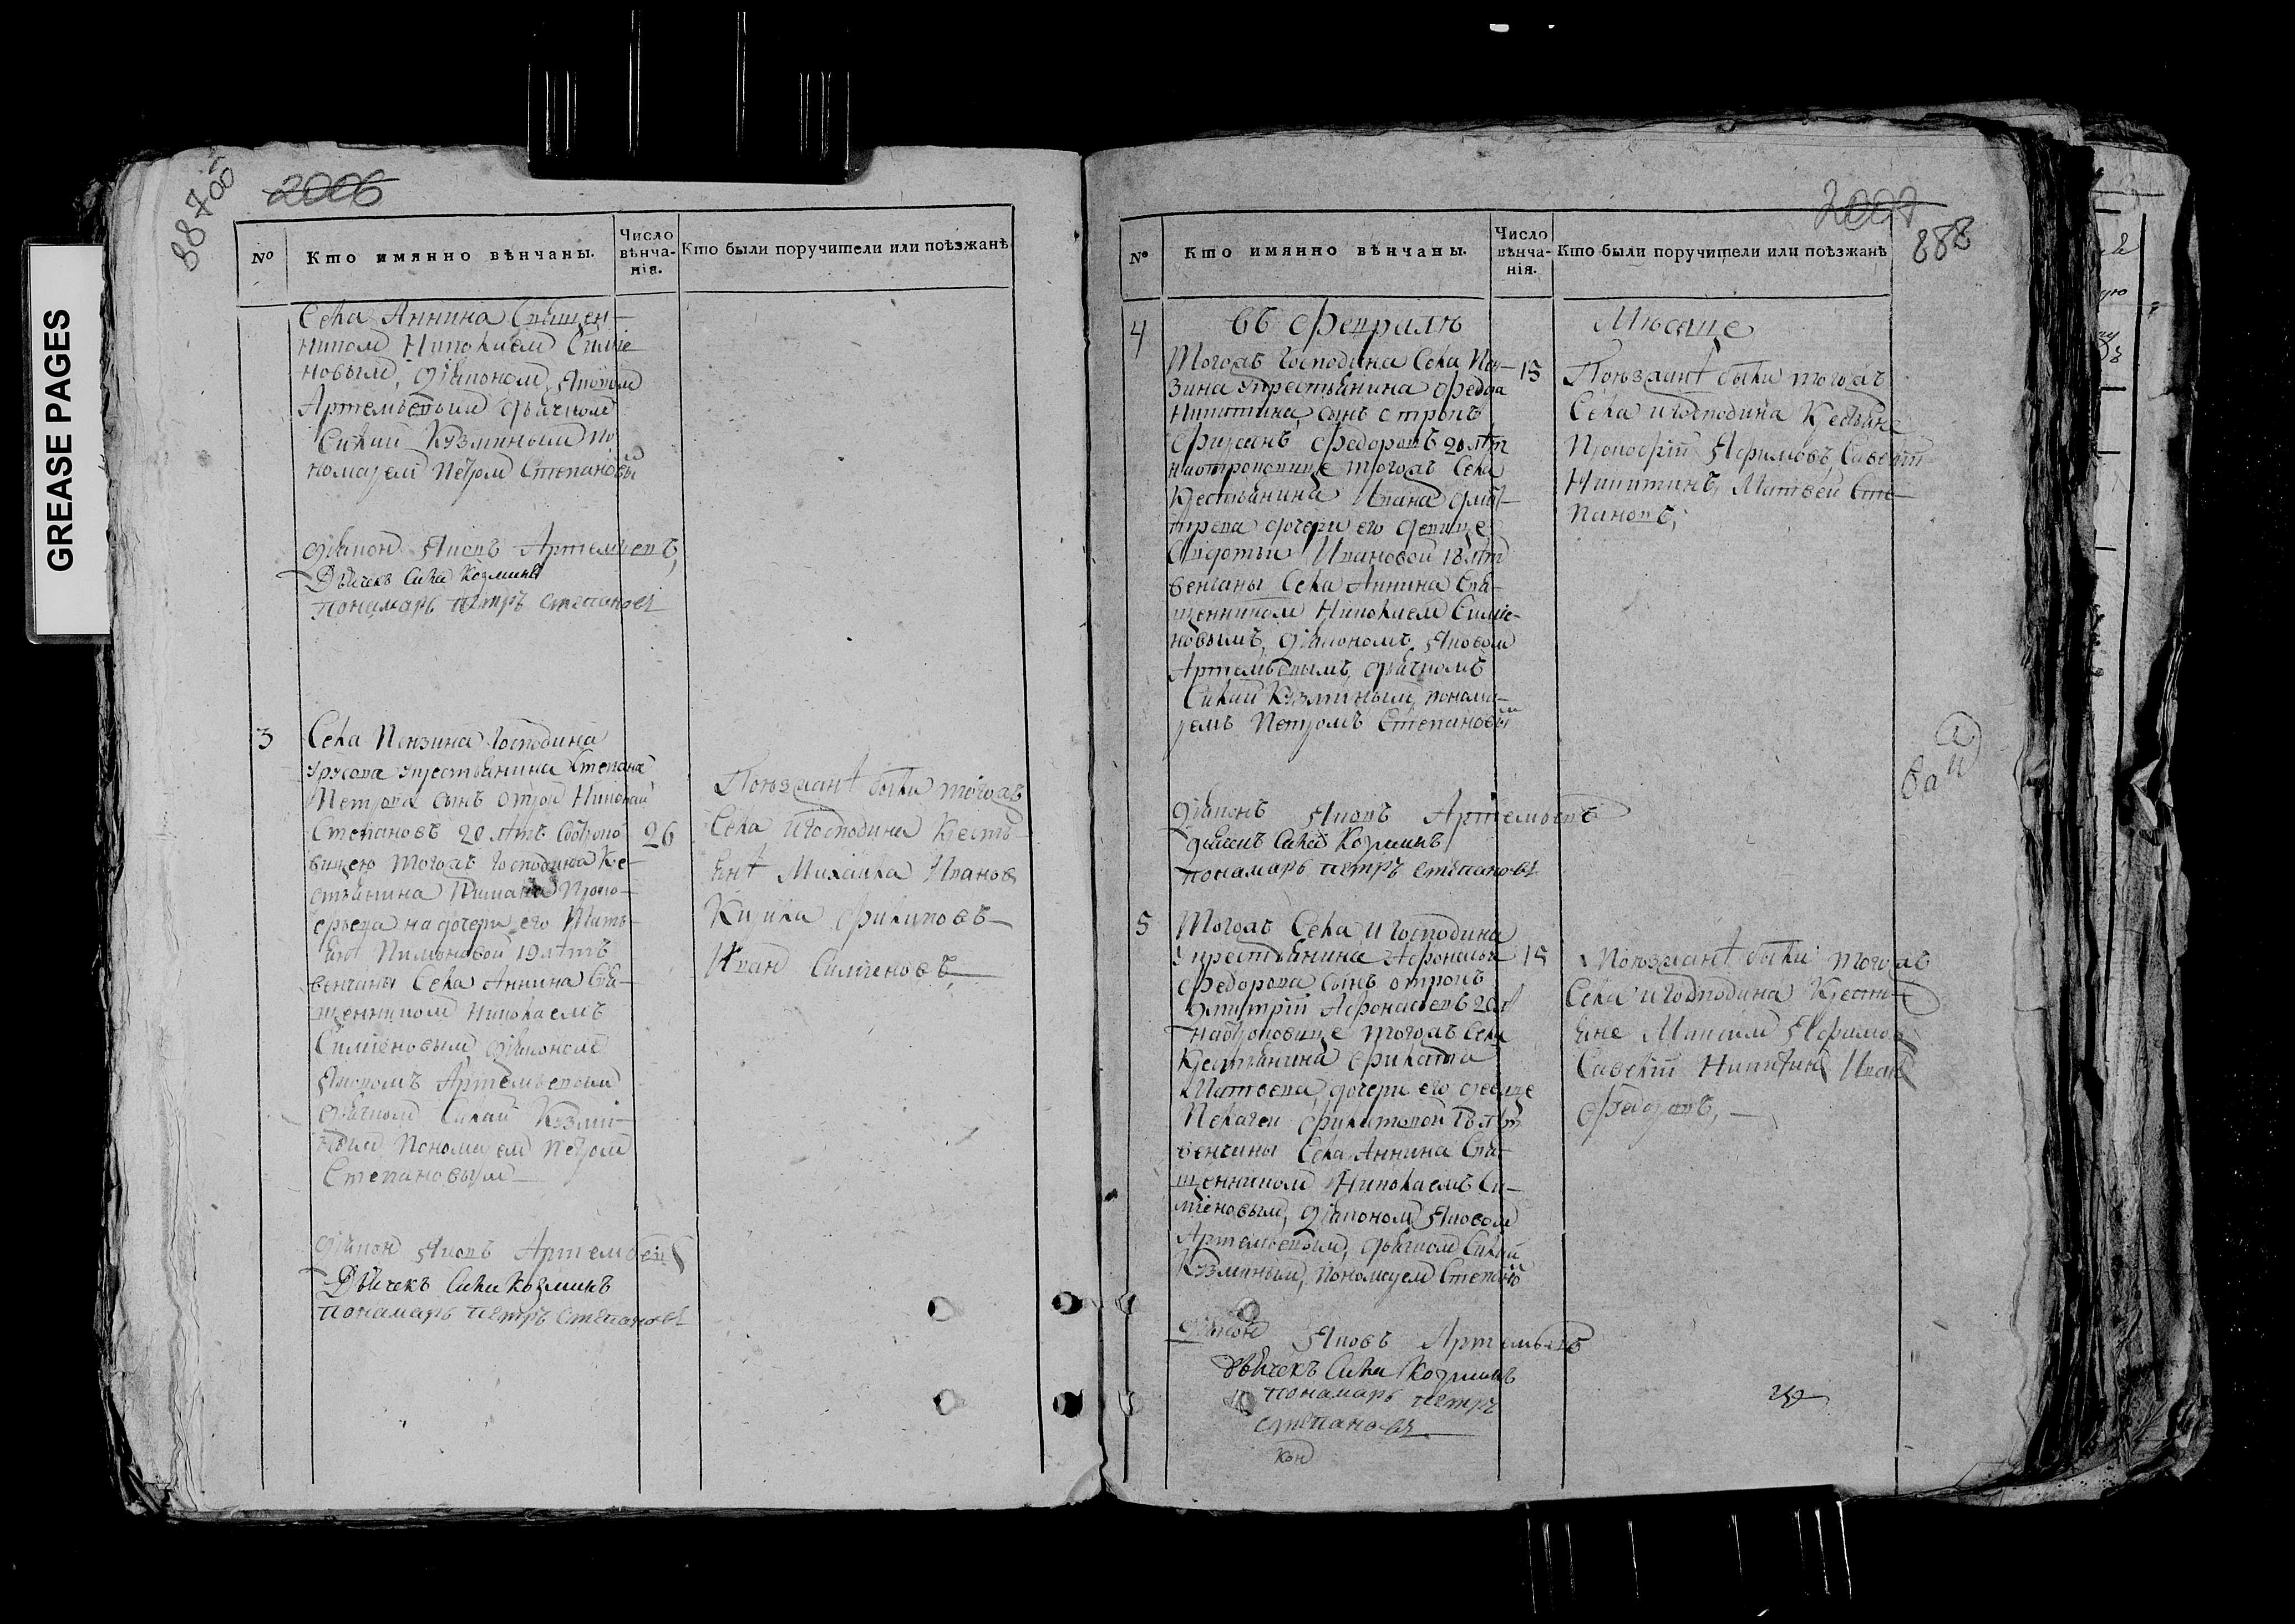 GREASE PAGES
887 об
2006
№
Кто имянно вѣнчаны.
Число вѣнча-нія.
Кто были поручители или поѣзжанѣ
Села Аннина Священ-
никомъ Николаемъ Симїе
новымъ, дїакономъ Яковомъ
Артемьевымъ дьячкомъ
Силай Кузминымъ по
номаремъ Петромъ Степановы
дїаконъ Яковъ Артемьевъ,
Дьячекъ Сила Козминъ
пономарь петръ степановъ
3
Села Понзина Господина
Урусова крестьянина Степана
Петрова сынъ отрок Николай
Степановъ 20 лѣтъ Сотроко
вицею тогожъ Господина Кре-
стьянина Пимана Проко-
фьева на дочери его Мать-
Пимоновой 19 лѣтъ
венчаны Села Аннина Свя-
щенникомъ Николаемъ
Симїеновымъ дїакономъ
Яковомъ Артемьевымъ
дьячкомъ Силай Кузми-
нымъ Пономаремъ Петромъ
Степановымъ
26
Поѣзжанѣ были тогожъ
Села и Господина Кресть
янѣ Михайла Иванов
Кирила Филиповъ
Иван Симїеновъ,
дїаконъ Яковъ Артемьевъ
Дьячекъ Сила Козминъ
пономарь петръ степановъ
2007
888
№
Кто имянно вѣнчаны.
Число вѣнча-нія.
Кто были поручители или поѣзжанѣ
4
въ Февралѣ
Мѣсяце
Тогожъ Господина Села Пон-
зина крестьянина Федора
Никитина, сынъ отрокъ
Фирсанъ Федоровъ 20 лѣт
наотроковице тогожъ Села
Крестьянина Ивана Дми-
трева дочери его девице
Авдотьи Ивановой 18 лѣт
венчаны Села Аннина Свя-
щенникомъ Николаем Симїе-
новымъ, дїакономъ, Яковом
Артемьевымъ, дьячкомъ
Силай Кузминымъ, понома-
ремъ Петромъ Степановы
15
Поѣзжанѣ были тогожъ
Села и Господина Крестьяне
Прокофїй Ефимовъ, Савелїй
Никитинъ, Матвей Сте-
пановъ,
дїаконъ Яковъ Артемьевъ
дьячекъ Сила Козминъ
пономарь петръ степановъ
5
Тогожъ Села и Господина
крестьянина Афонасья
Федорова сынъ отрокъ
Дмитрїй Афонасьевъ 20 л
наотроковице тогожъ Села
Крестьянина Филата
Матвева, дочери его девице
Пелагеи Филатовой лѣт
венчаны Села Аннина Свя-
щенникомъ Николаемъ Си-
мїеновым, дїакономъ Яковом
Артемьевымъ, дьячкомъ Силай
Кузминымъ, Пономаремъ Степано
15
Поѣзжанѣ были тогожъ
Села и Господина Кресть-
яне Максим Ефимов
Савелїй Никитин Иван
Федоровъ,
дїаконъ Яковъ Артемьевъ
Дьячекъ Сила Козминъ
пономарь петръ
степановъ